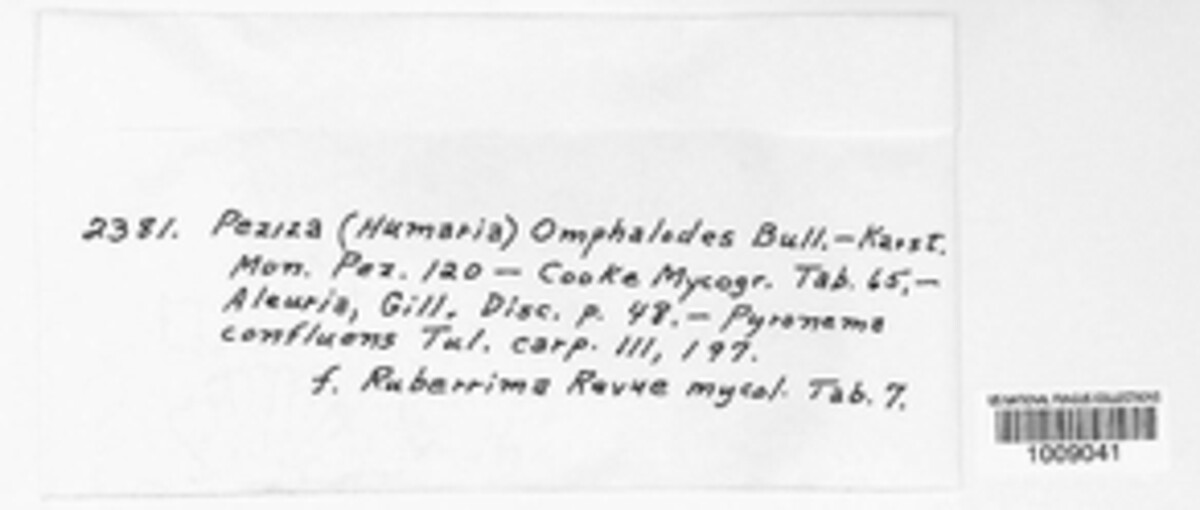 2381. Peziza (Humaria) Omphalodes Bull.—Karst.
Mon. Pez. 120 — Cooke Mycogr. Tab. 65.—
Aleuria, Gill. Disc. p. 48.— Pyronema
confluens Tul. carp. III, 197.
f. Ruberrima Revue mycol. Tab. 7.
US NATIONAL FUNGUS COLLECTIONS
1009041